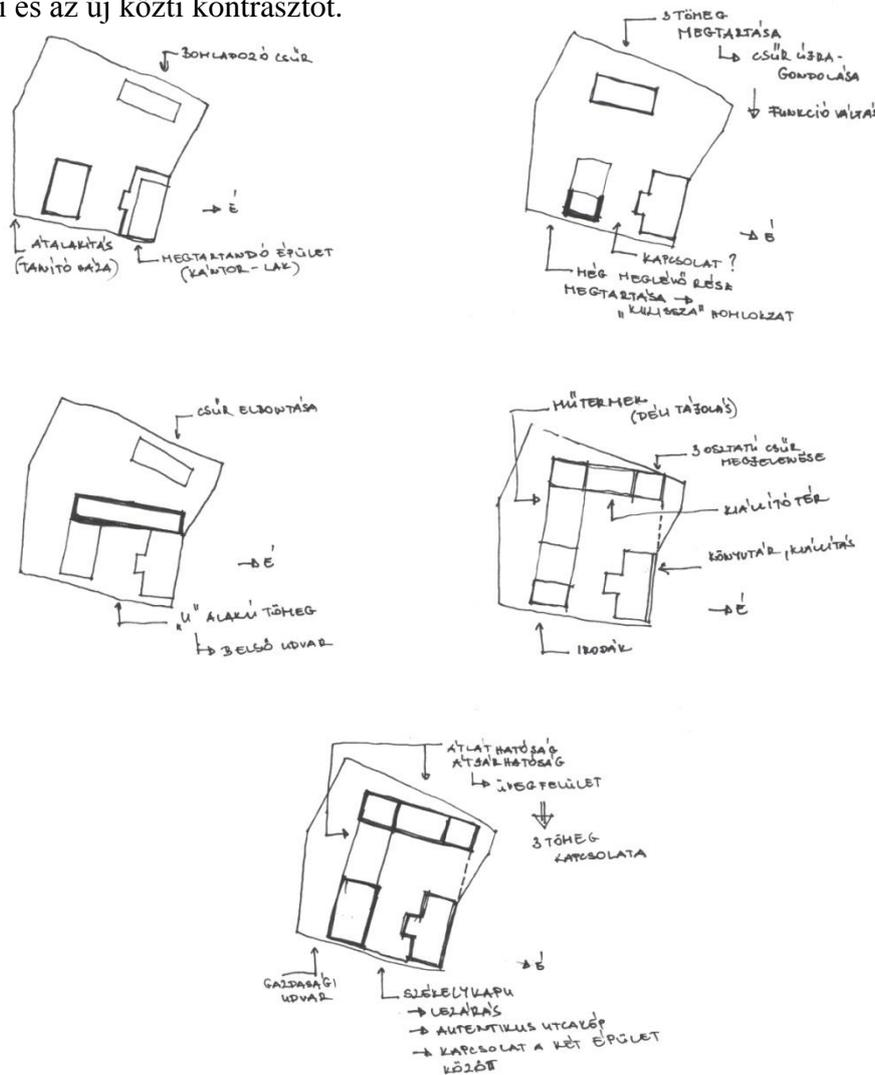 i és az új közti kontrasztot.
BOMLADOZÓ CSŰR
É
ÁTALAKÍTÁS
(TANÍTÓ HÁZA)
MEGTARTANDÓ ÉPÜLET
(KÁNTOR-LAK)
3 TÖMEG
MEGTARTÁSA
CSŰR ÚJRA-
GONDOLÁSA
FUNKCIÓ VÁLTÁS
É
KAPCSOLAT ?
MÉG MEGLÉVŐ RÉSZ
MEGTARTÁSA →
"KULISSZA" HOMLOKZAT
CSŰR ELBONTÁSA
É
"U" ALAKÚ TÖMEG
BELSŐ UDVAR
MŰTERMEK
(DÉLI TÁJOLÁS)
3 OSZTATÚ CSŰR
MEGJELENÉSE
KIÁLLÍTÓ TÉR
KÖNYVTÁR, KIÁLLÍTÁS
É
IRODÁK
ÁTLÁTHATÓSÁG
ÁTJÁRHATÓSÁG
ÜVEGFELÜLET
3 TÖMEG
KAPCSOLATA
É
GAZDASÁGI
UDVAR
SZÉKELYKAPU
→ LEZÁRÁS
→ AUTENTIKUS UTCAKÉP
→ KAPCSOLAT A KÉT ÉPÜLET
KÖZÖTT